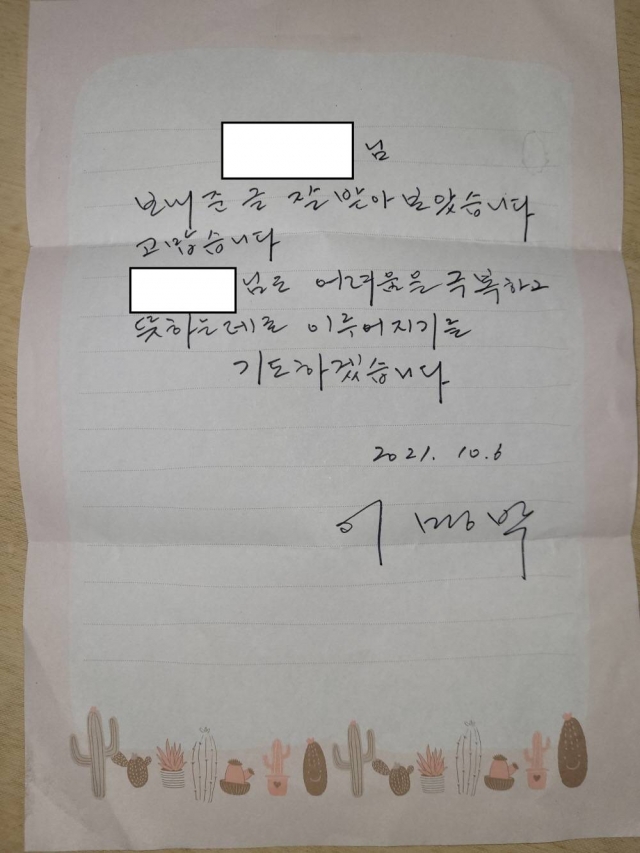 님
보내 준 글 잘 받아 보았습니다
고맙습니다
님도 어려움을 극복하고
뜻하는데로 이루어지기를
기도하겠습니다
2021. 10. 6
이 명박